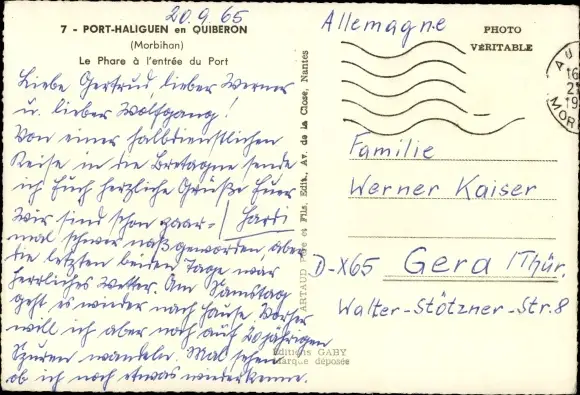 20.9.65
7 - PORT-HALIGUEN en QUIBERON
(Morbihan)
Le Phare à l'entrée du Port
Liebe Gertrud, lieber Werner
u. lieber Wolfgang!
Von einer halbdienstlichen
Reise in die Bretagne sende
ich Euch herzliche Grüße Euer
Hardi
Wir sind schon paar-
mal schwer naß geworden, aber
die letzten beiden Tage war
herrliches Wetter. Am Samstag
geht es wieder nach Hause. Vorher
will ich aber noch auf 20jährigen
Spuren wandeln. Mal sehen
ob ich noch etwas wiederkenne.
ARTAUD Père et Fils, Edit., Av. de la Close, Nantes
Editions GABY
Marque déposée
Allemagne
PHOTO
VÉRITABLE
AU
16
MOR
Familie
Werner Kaiser
D-X65 Gera /Thür.
Walter-Stötzner-Str. 8